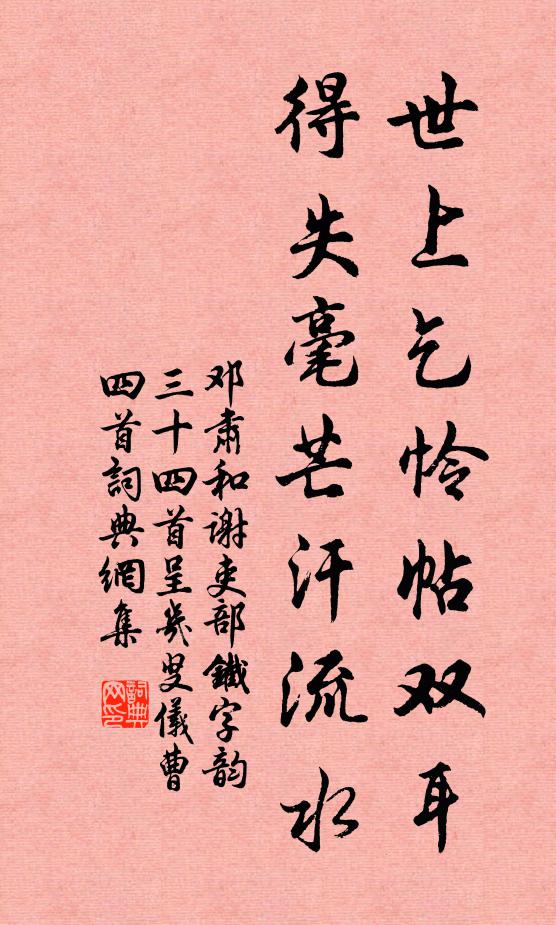 世上乞怜帖双耳
得失毫芒汗流水
邓肃和谢吏部鐵字韵
三十四首呈几叟儀曹
四首詞典網集
詞典网印